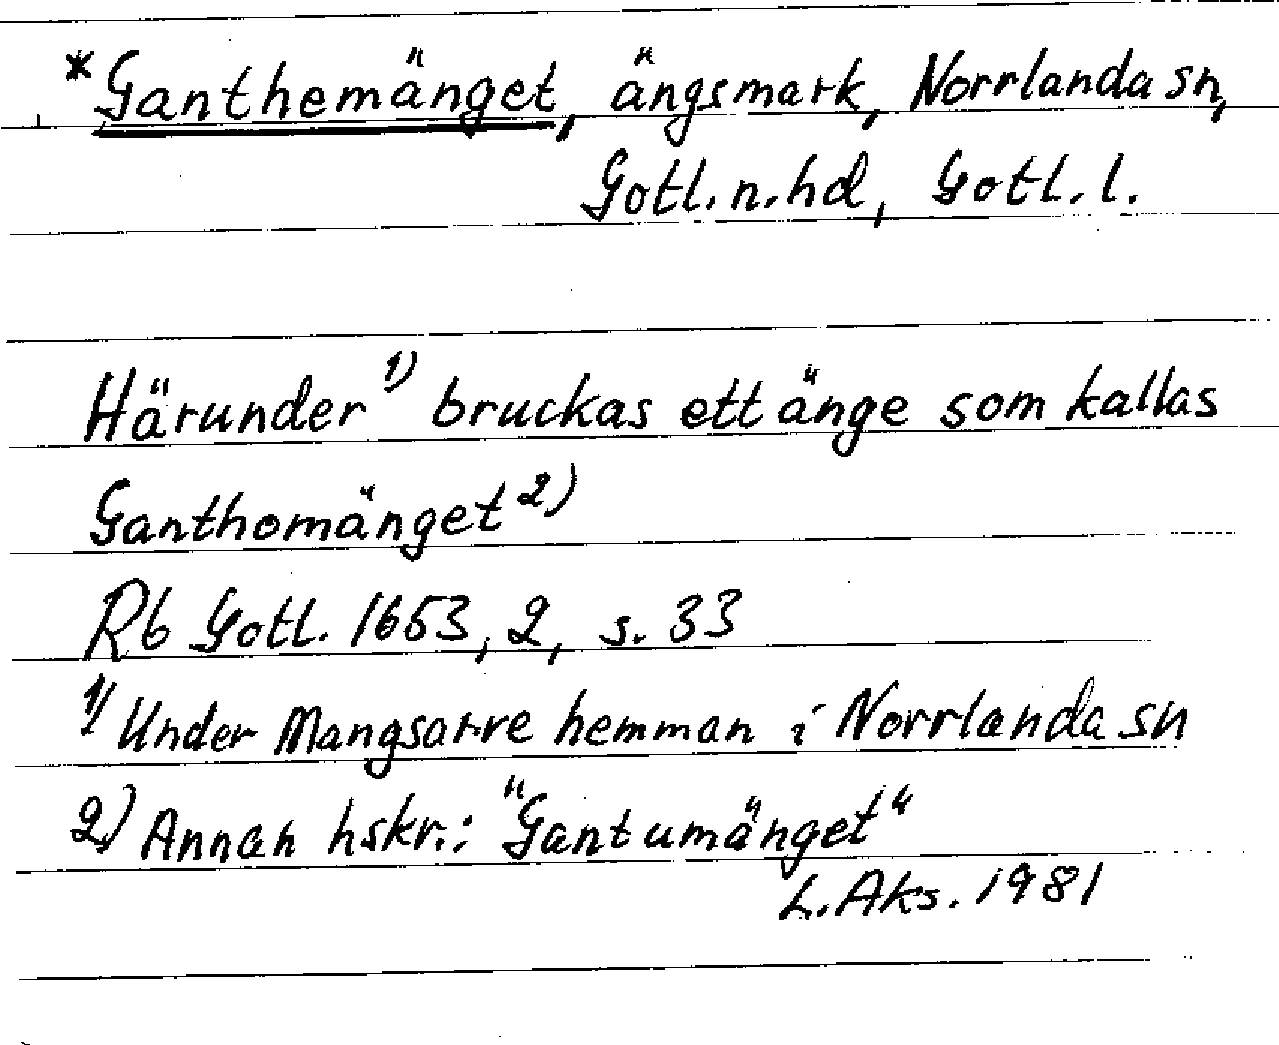 *Ganthemänget, ängsmark, Norrlanda sn,
Gotl. n. hd, Gotl. l.
Härunder 1) bruckas ett änge som kallas
Ganthomänget 2)
Rb Gotl. 1653, 2, s. 33
1) Under Mangsarve hemman i Norrlanda sn
2) Annan hskr.: "Gantumänget"
L. Aks. 1981